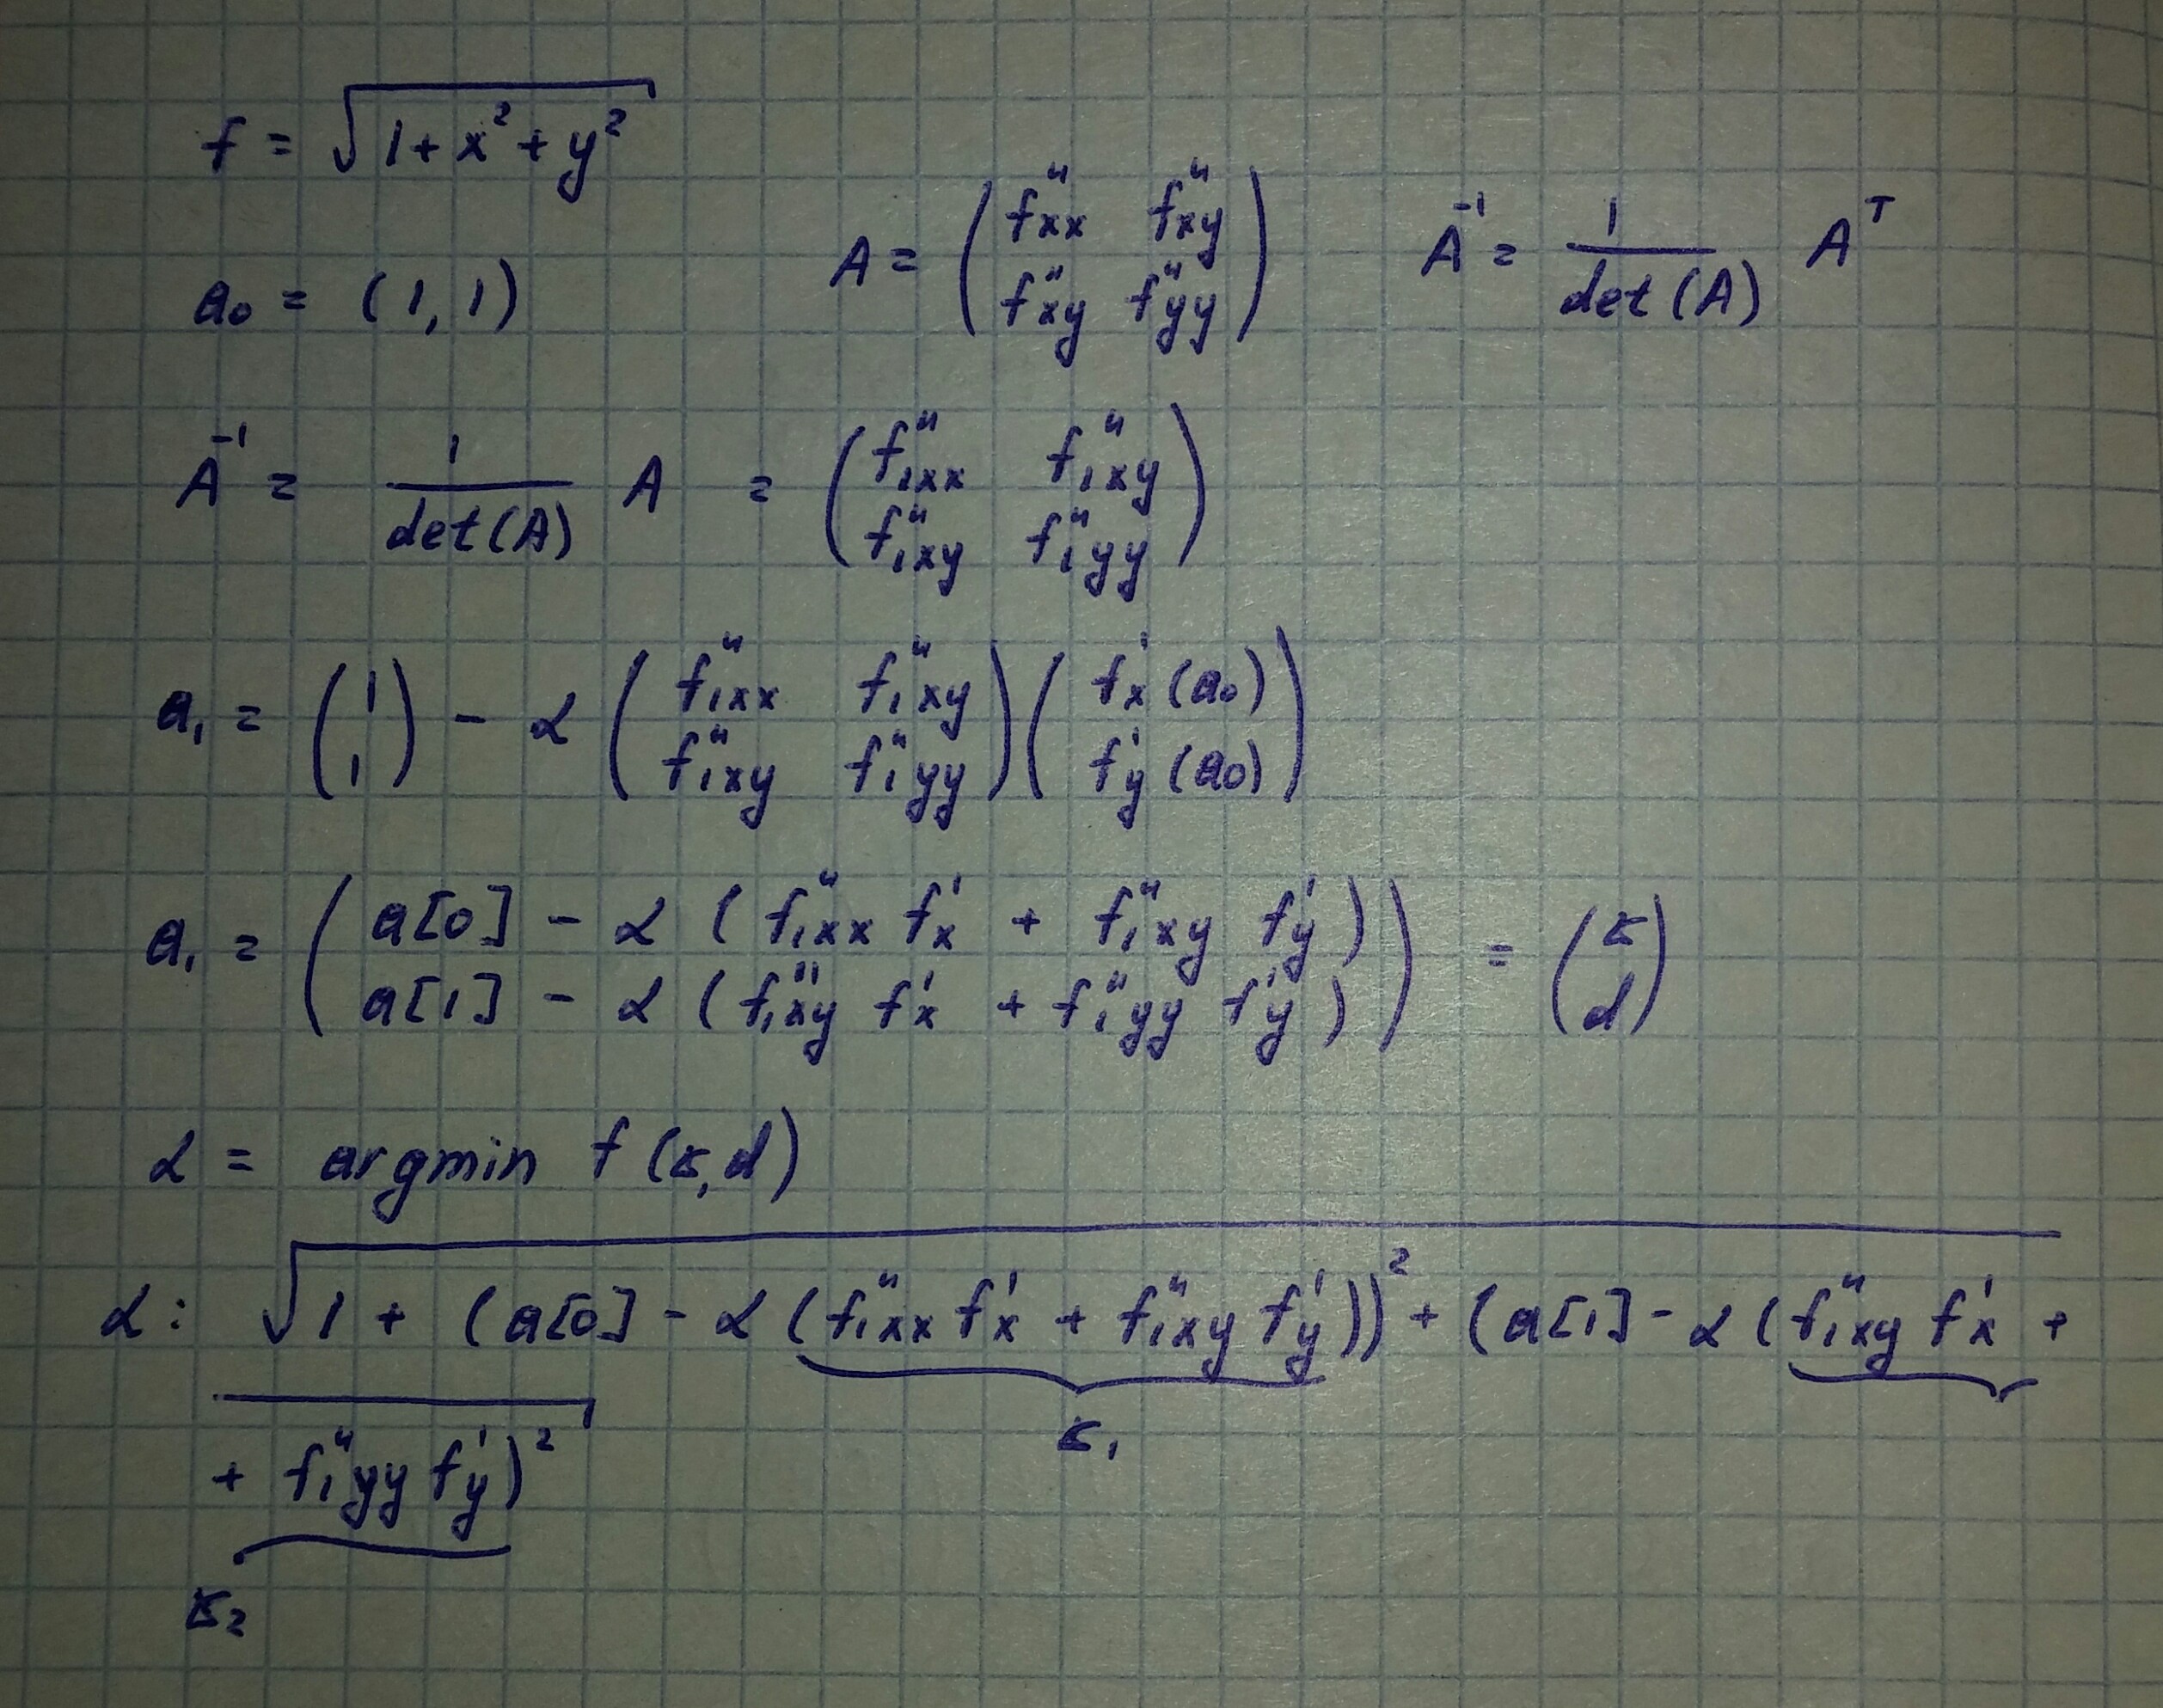 f = √(1 + x² + y²)
a₀ = (1, 1)
A = ( f''xx f''xy ; f''xy f''yy )
A⁻¹ = 1/det(A) Aᵀ
A⁻¹ = 1/det(A) A = ( f₁''xx f₁''xy ; f₁''xy f₁''yy )
a₁ = ( 1 ; 1 ) - α ( f₁''xx f₁''xy ; f₁''xy f₁''yy ) ( f'x (a₀) ; f'y (a₀) )
a₁ = ( a[0] - α ( f₁''xx f'x + f₁''xy f'y ) ; a[1] - α ( f₁''xy f'x + f₁''yy f'y ) ) = ( б ; d )
α = argmin f (б, d)
α : √(1 + (a[0] - α (f₁''xx f'x + f₁''xy f'y))² + (a[1] - α (f₁''xy f'x +
б₁
+ f₁''yy f'y)²
б₂